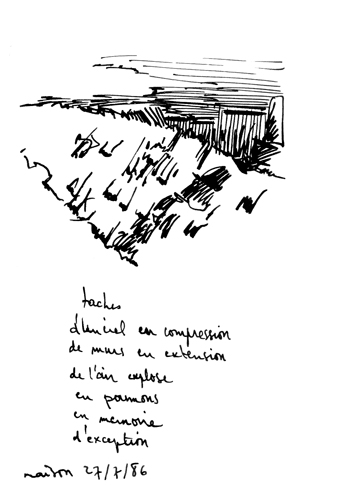 taches
en compression
de murs en extension
de l'air explose
en poumons
en memoire
d'exception
maison 27/7/86